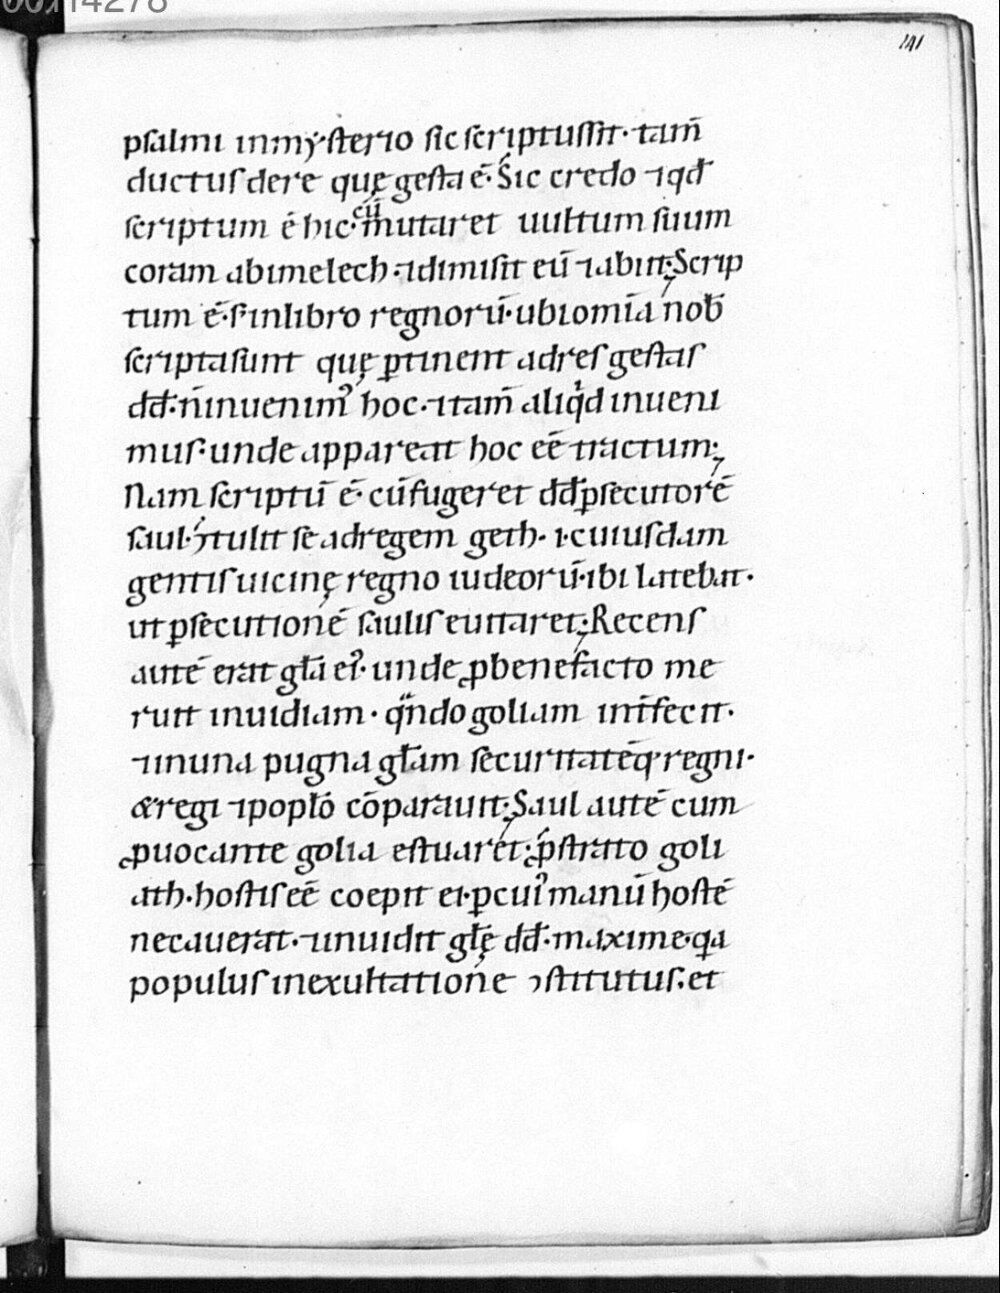 00114278
141
psalmi inmẏsterio sic scriptussit· tam̄
ductusdere quę gesta ē· Sic credo ⁊qd̄
scriptum ē hic· cū mutaret uultum suum
coram abimelech ·⁊dimisit eū ⁊abiit; Scrip
tum ē· s· inlibro regnorū· ubiomīa nob̄
scriptasunt quę ꝑtinent adres gestas
dd̄· n̄inuenimꝰ hoc· ⁊tam̄ aliqͥd inueni
mus· unde appareat hoc eē tractum;
Nam scriptū ē· cūfugeret dd̄ꝑsecutorē
saul· ↄtulit se adregem geth· i·cuiusdam
gentis uicinę regno iudeorū· ibi latebat·
ut ꝑsecutionē saulis euitaret; Recens
autē erat gła eiꝰ· unde ꝓbenefacto me
ruit inuidiam· qn̄do goliam int̄fecit·
⁊inuna pugna głam securitatēq· regni·
&regi ⁊popłō cōparauit; Saul autē cum
ꝓuocante golia estuaret· ꝓstrato goli
ath· hostis eē coepit ei· ꝑcuiꝰmanū hostē
necauerat· ⁊inuidit głę dd̄· maxime· qa
populus inexultatione ↄstitutus· et